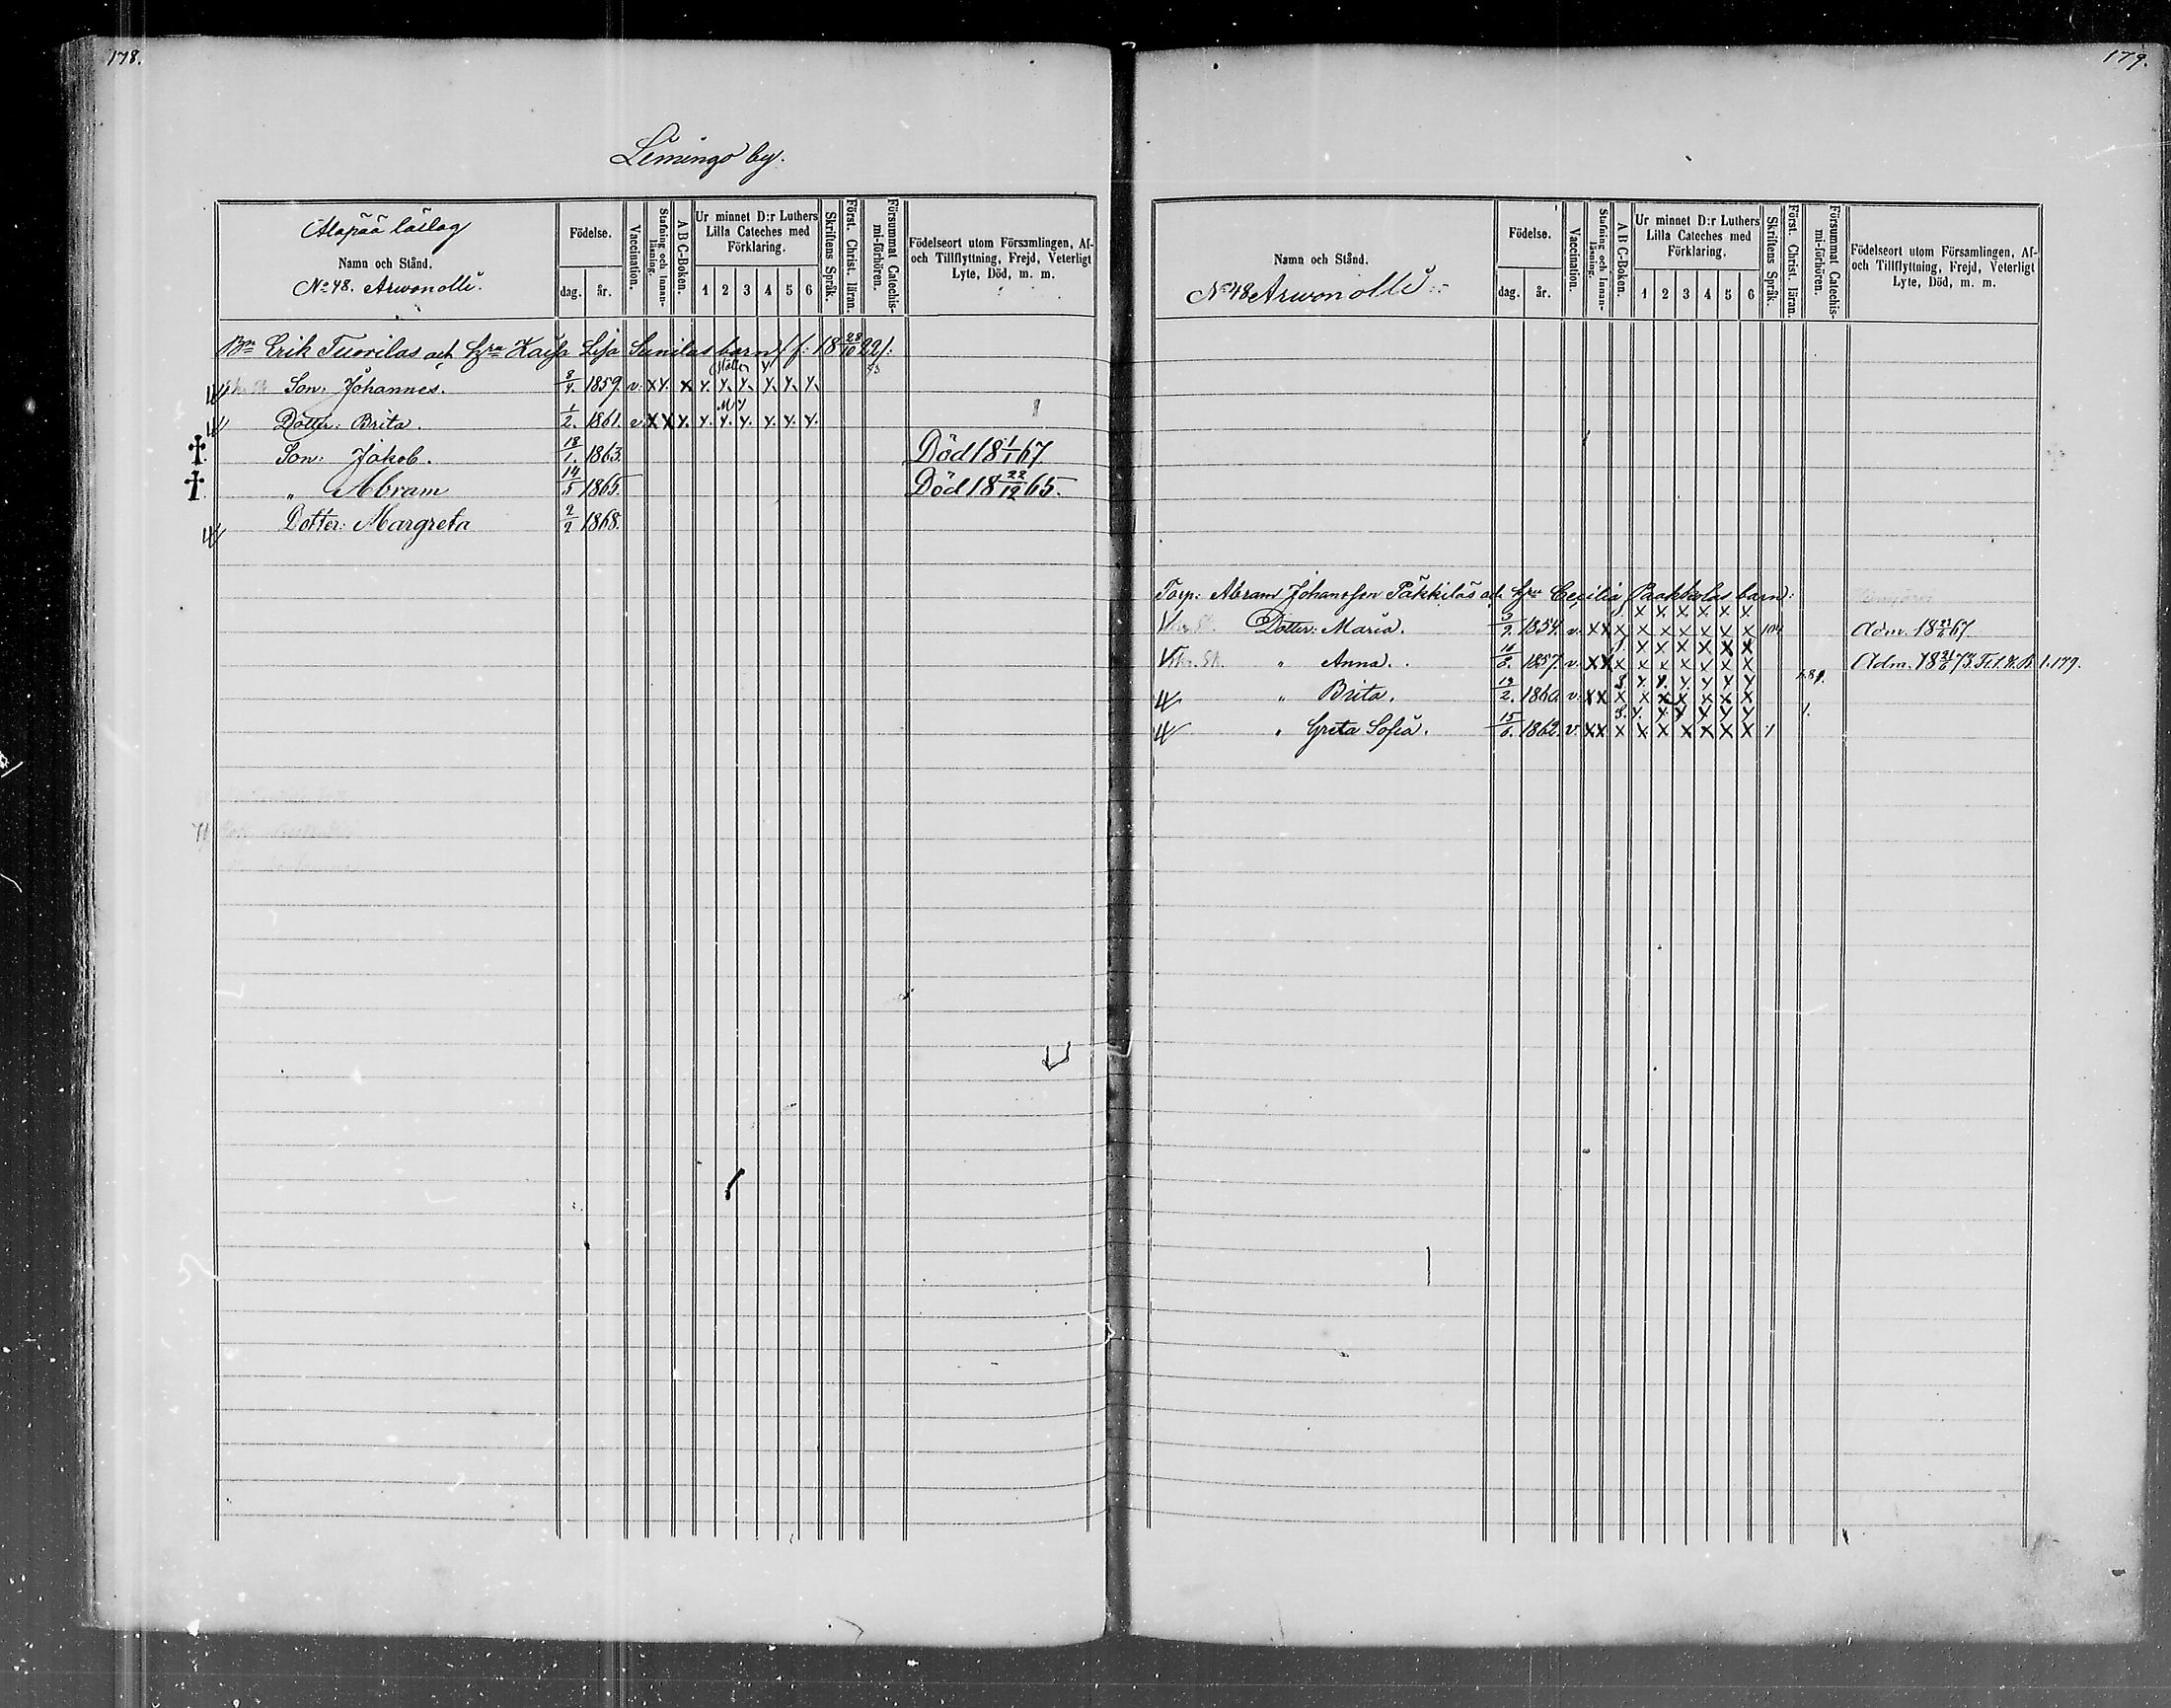 178.
Limingo by.
Alapää läslag
Namn och Stånd.
No 48. Arwonolli.
Födelse.
dag. år.
Vaccination.
Stafning och Innan-
läsning.
A B C-Boken.
Ur minnet D:r Luthers
Lilla Cateches med
Förklaring.
1 2 3 4 5 6
Skriftens Språk.
Först. Christ. läran.
Försummat Catechis-
mi-förhören.
Födelseort utom Församlingen, Af-
och Tillflyttning, Frejd, Veterligt
Lyte, Död, m. m.
Bn Erik Tuorilas och hra Kaisa Lisa Sunilas barn /f: 18 28/10 22/:
Son: Johannes. 8/4. 1859. v. x y. x y. y. y. y. y. y.
Dotter: Brita. 1/2. 1861. v x x y. y. y. y. y. y. y.
† Son: Jakob. 18/1. 1863. Död 18 1/1 67.
† " Abram 14/5 1865. Död 18 22/12 65.
Dotter: Margreta 2/2 1868.
179.
Namn och Stånd.
No 48 Arwonolli
Födelse.
dag. år.
Vaccination.
Stafning och Innan-
läsning.
A B C-Boken.
Ur minnet D:r Luthers
Lilla Cateches med
Förklaring.
1 2 3 4 5 6
Skriftens Språk.
Först. Christ. läran.
Försummat Catechis-
mi-förhören.
Födelseort utom Församlingen, Af-
och Tillflyttning, Frejd, Veterligt
Lyte, Död, m. m.
Torp: Abram Johansson Päkkiläs och hru Cecilia Paakkolas barn:
x x x x x x
Dotter: Maria. 3/9. 1854. v. x x x x x x x x x Adm. 18 67
x x x x x x
" Anna. 1857. v. x x x x x x x x x Adm. 18 21/6 73. 1.179.
" Brita. 19/2. 1860. v. x x x x x x x x x
" Greta Sofia. 15/6. 1862. v. x x x x x x x x x